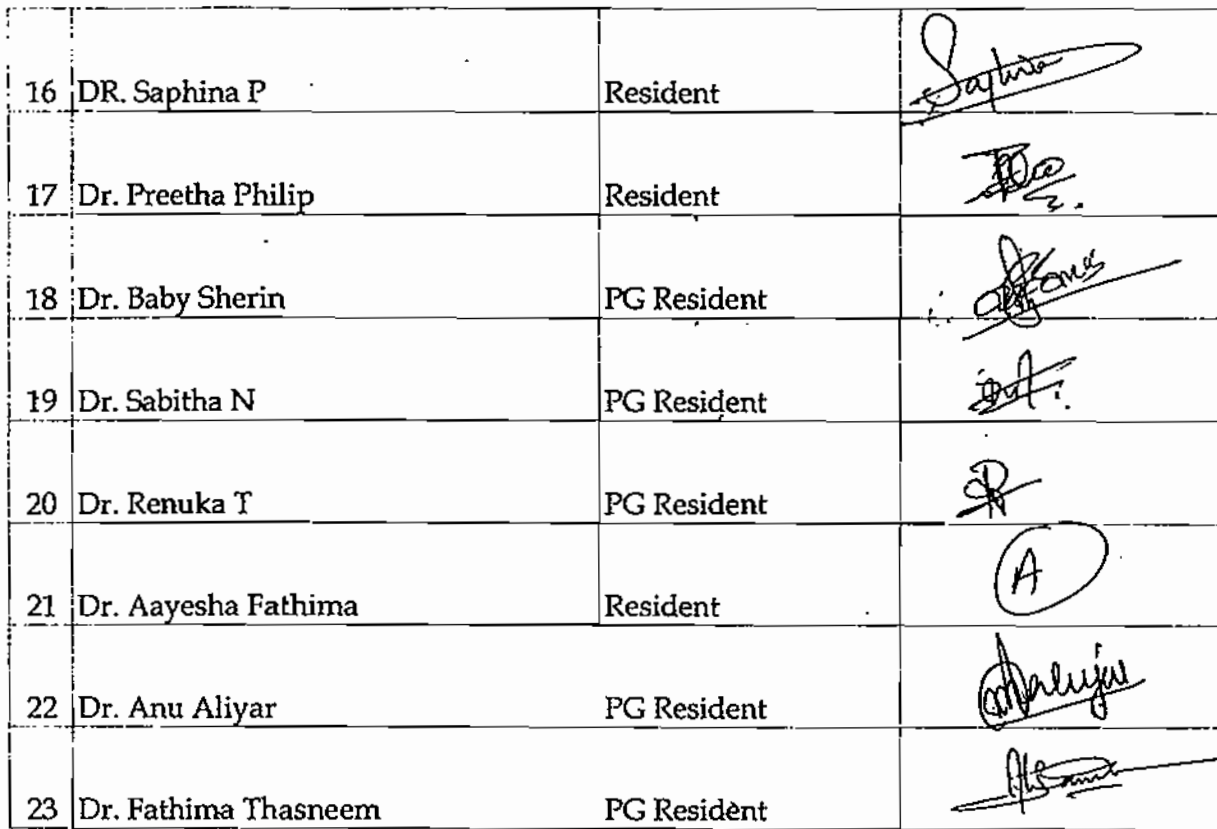 16 DR. Saphina P Resident Saphina
17 Dr. Preetha Philip Resident
18 Dr. Baby Sherin PG Resident
19 Dr. Sabitha N PG Resident
20 Dr. Renuka T PG Resident
21 Dr. Aayesha Fathima Resident A
22 Dr. Anu Aliyar PG Resident
23 Dr. Fathima Thasneem PG Resident